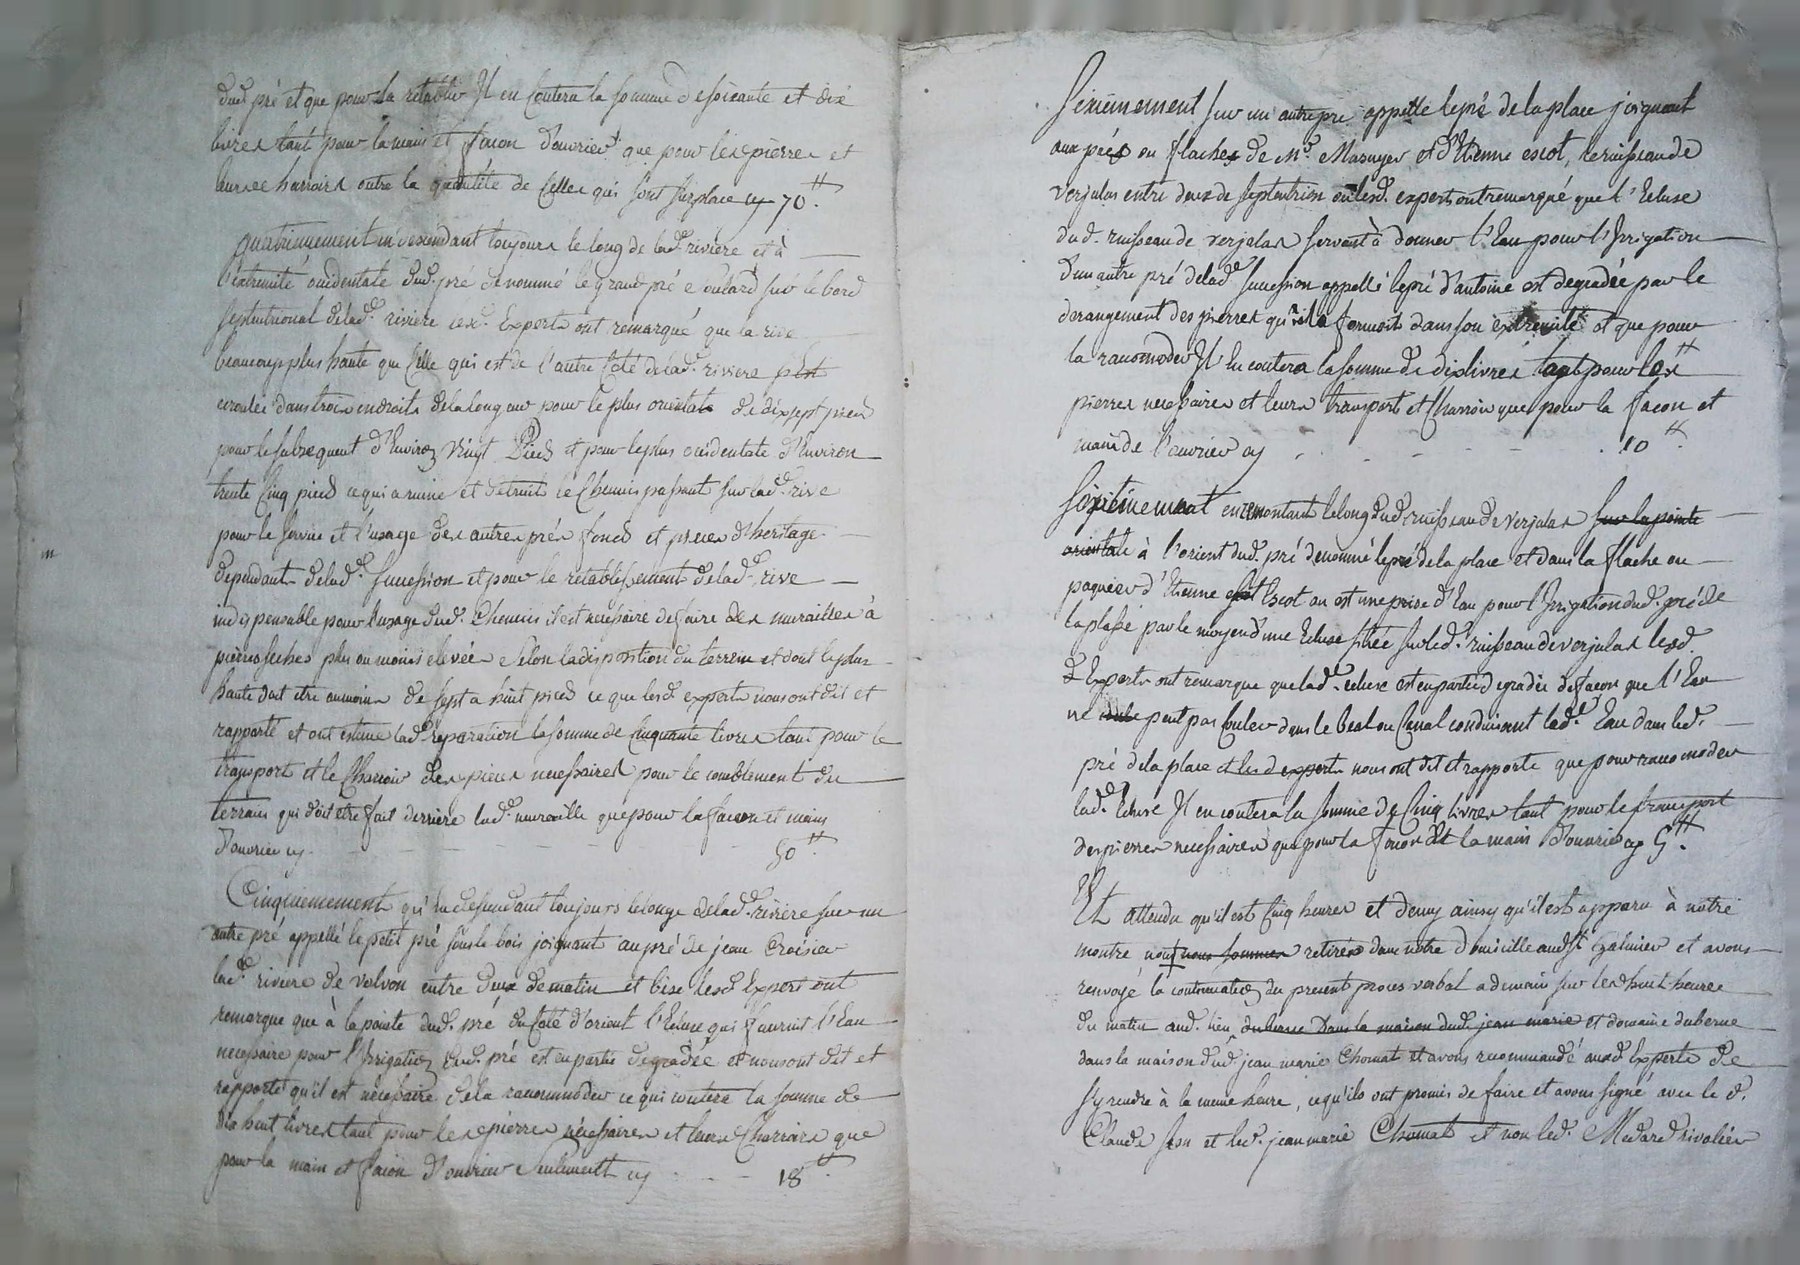 dud. pré et que pour la retablir Il en Coutera la somme de soixante et dix
livres tant pour la main et façon d'ouvrier que pour les pierres et
leurs charrois outre la quantité de Celles qui sont sur place cy 70.tt
quatriemement en descendant toujours le long de lad.e riviere et à
l'extremité occidentale dud. pré denommé le grand pré sur le bord
septentrional delad.e riviere lesd. Experts ont remarqué que la rive
beaucoup plus haute que Celle qui est de l'autre Coté delad.e riviere s'est
ecroulée dans trois endroits de la longueur pour le plus orientale de dixsept pieds
pour le subsequent d'Environ Vingt Pieds et pour le plus occidentale d'Environ
trente Cinq pieds ce qui a ruiné et detruit le Chemin passant sur lad.e rive
pour le service et l'usage des autres prés fonds et pieces d'heritage
dependants delad.e succession et pour le retablissement delad.e rive
indispensable pour l'usage dud. Chemin il est necessaire de faire des murailles à
pierres seches plus ou moins elevées selon la disposition du terrein et dont la plus
haute doit etre aumoins de sept a huit pieds ce que lesd. experts nous ont dit et
rapporté et ont estimé lad.e reparation la somme de Cinquante livres tant pour le
transport et le Charroir des pierres necessaires pour le comblement du
terrain qui doit etre fait derriere lad.e muraille que pour la facon et main
d'ouvrier cy 50tt
Cinquiemement qu'en descendant toujours le long delad.e riviere sur un
autre pré appellé le petit pré sous le bois joignant au pré de jean Croisier
lad.e riviere de volvon entre deux de matin et bise lesd. Experts ont
remarqué que à la pointe dud. pré du Coté d'orient l'Ecluse qui fournit l'Eau
necessaire pour l'Irrigation dud. pré est en partie degradée et nous ont dit et
rapporté qu'il est necessaire de la racommoder ce qui coutera la somme de
dix huit livres tant pour les pierres nécessaires et leurs Charrois que
pour la main et façon d'ouvrier seulement cy 18tt
Sixiemement sur un autre pré appellé le pré de la place joignant
aux prés ou flaches de Mr. Mazuyer et d'Etienne escot, le ruisseau de
verjalas entre deux de septentrion ou lesd. experts ont remarqué que l'Ecluse
dud. ruisseau de verjalas servant à donner l'Eau pour l'Irrigation
d'un autre pré delad.e succession appellé le pré d'antoine est degradée par le
derangement des pierres qui la formoit dans son extremité et que pour
la racomoder Il en coutera la somme de dix livres tant pour les
pierres necessaires et leurs transports et Charrois que pour la facon et
main de l'ouvrier cy 10tt
Septiemement en remontant le long dud. ruisseau de verjalas sur la pointe
orientale à l'orient dud. pré denommé le pré de la place et dans la flache ou
paquier d'Etienne Escot ou est une prise d'Eau pour l'Irrigation dud. pré de
la place par le moyen d'une Ecluse sitée sur led. ruisseau de verjalas lesd.
Experts ont remarqué que lad.e ecluse est en partie degradée de façon que l'Eau
ne peut pas Couler dans le Beal ou Canal conduisant lad.e Eau dans led.
pré de la place et lesd experts nous ont dit et rapporté que pour racomoder
lad.e Ecluse Il en coutera la somme de Cinq livres tant pour le transport
des pierres necessaires que pour la facon et la main d'ouvrier cy 5tt.
Et attendu qu'il est Cinq heures et demy ainsy qu'il est apparu à notre
montre nous nous sommes retirés dans notre domicille aud St Galmier et avons
renvoyé la continuation du present proces verbal a demain sur les huit heures
du matin aud. lieu duberne dans la maison dud. jean marie et domaine duberne
dans la maison dud. jean marie Chomat et avons recommandé auxd Experts de
s'y rendre à la meme heure, ce qu'ils ont promis de faire et avons signé avec le d.
Claude et led. jean marie Chomat et non led. Medard rivolier